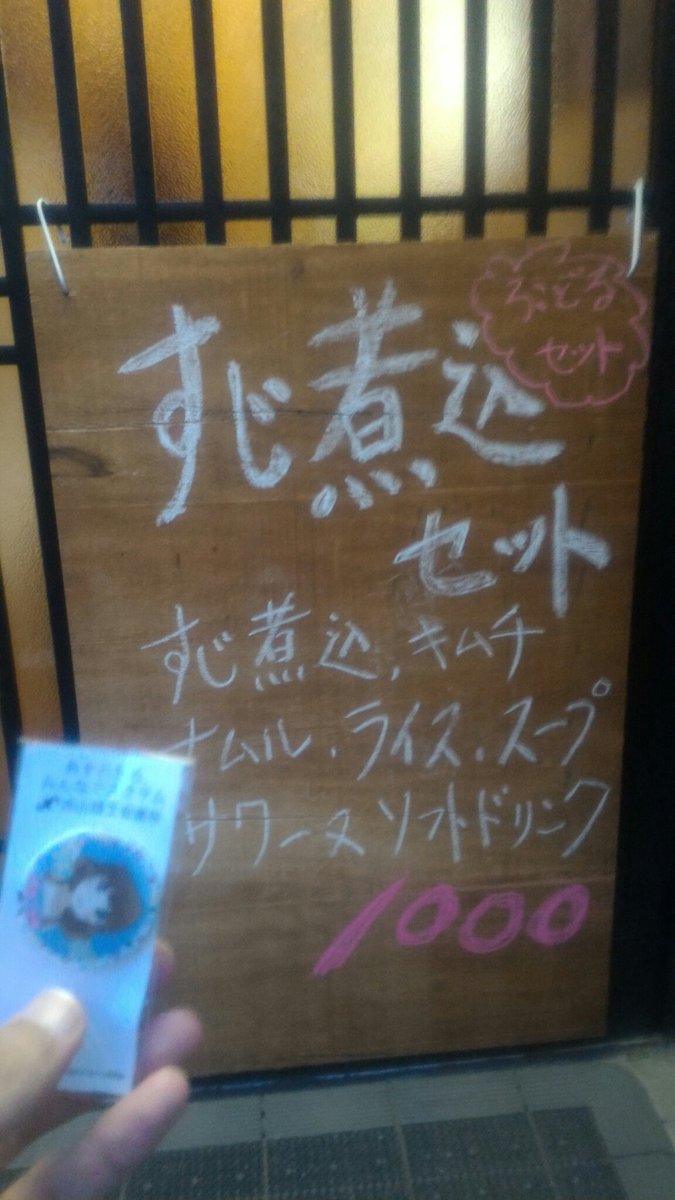 ろこどる
セット
すじ煮込
セット
すじ煮込、キムチ
ナムル、ライス、スープ
サワー又ソフトドリンク
1000